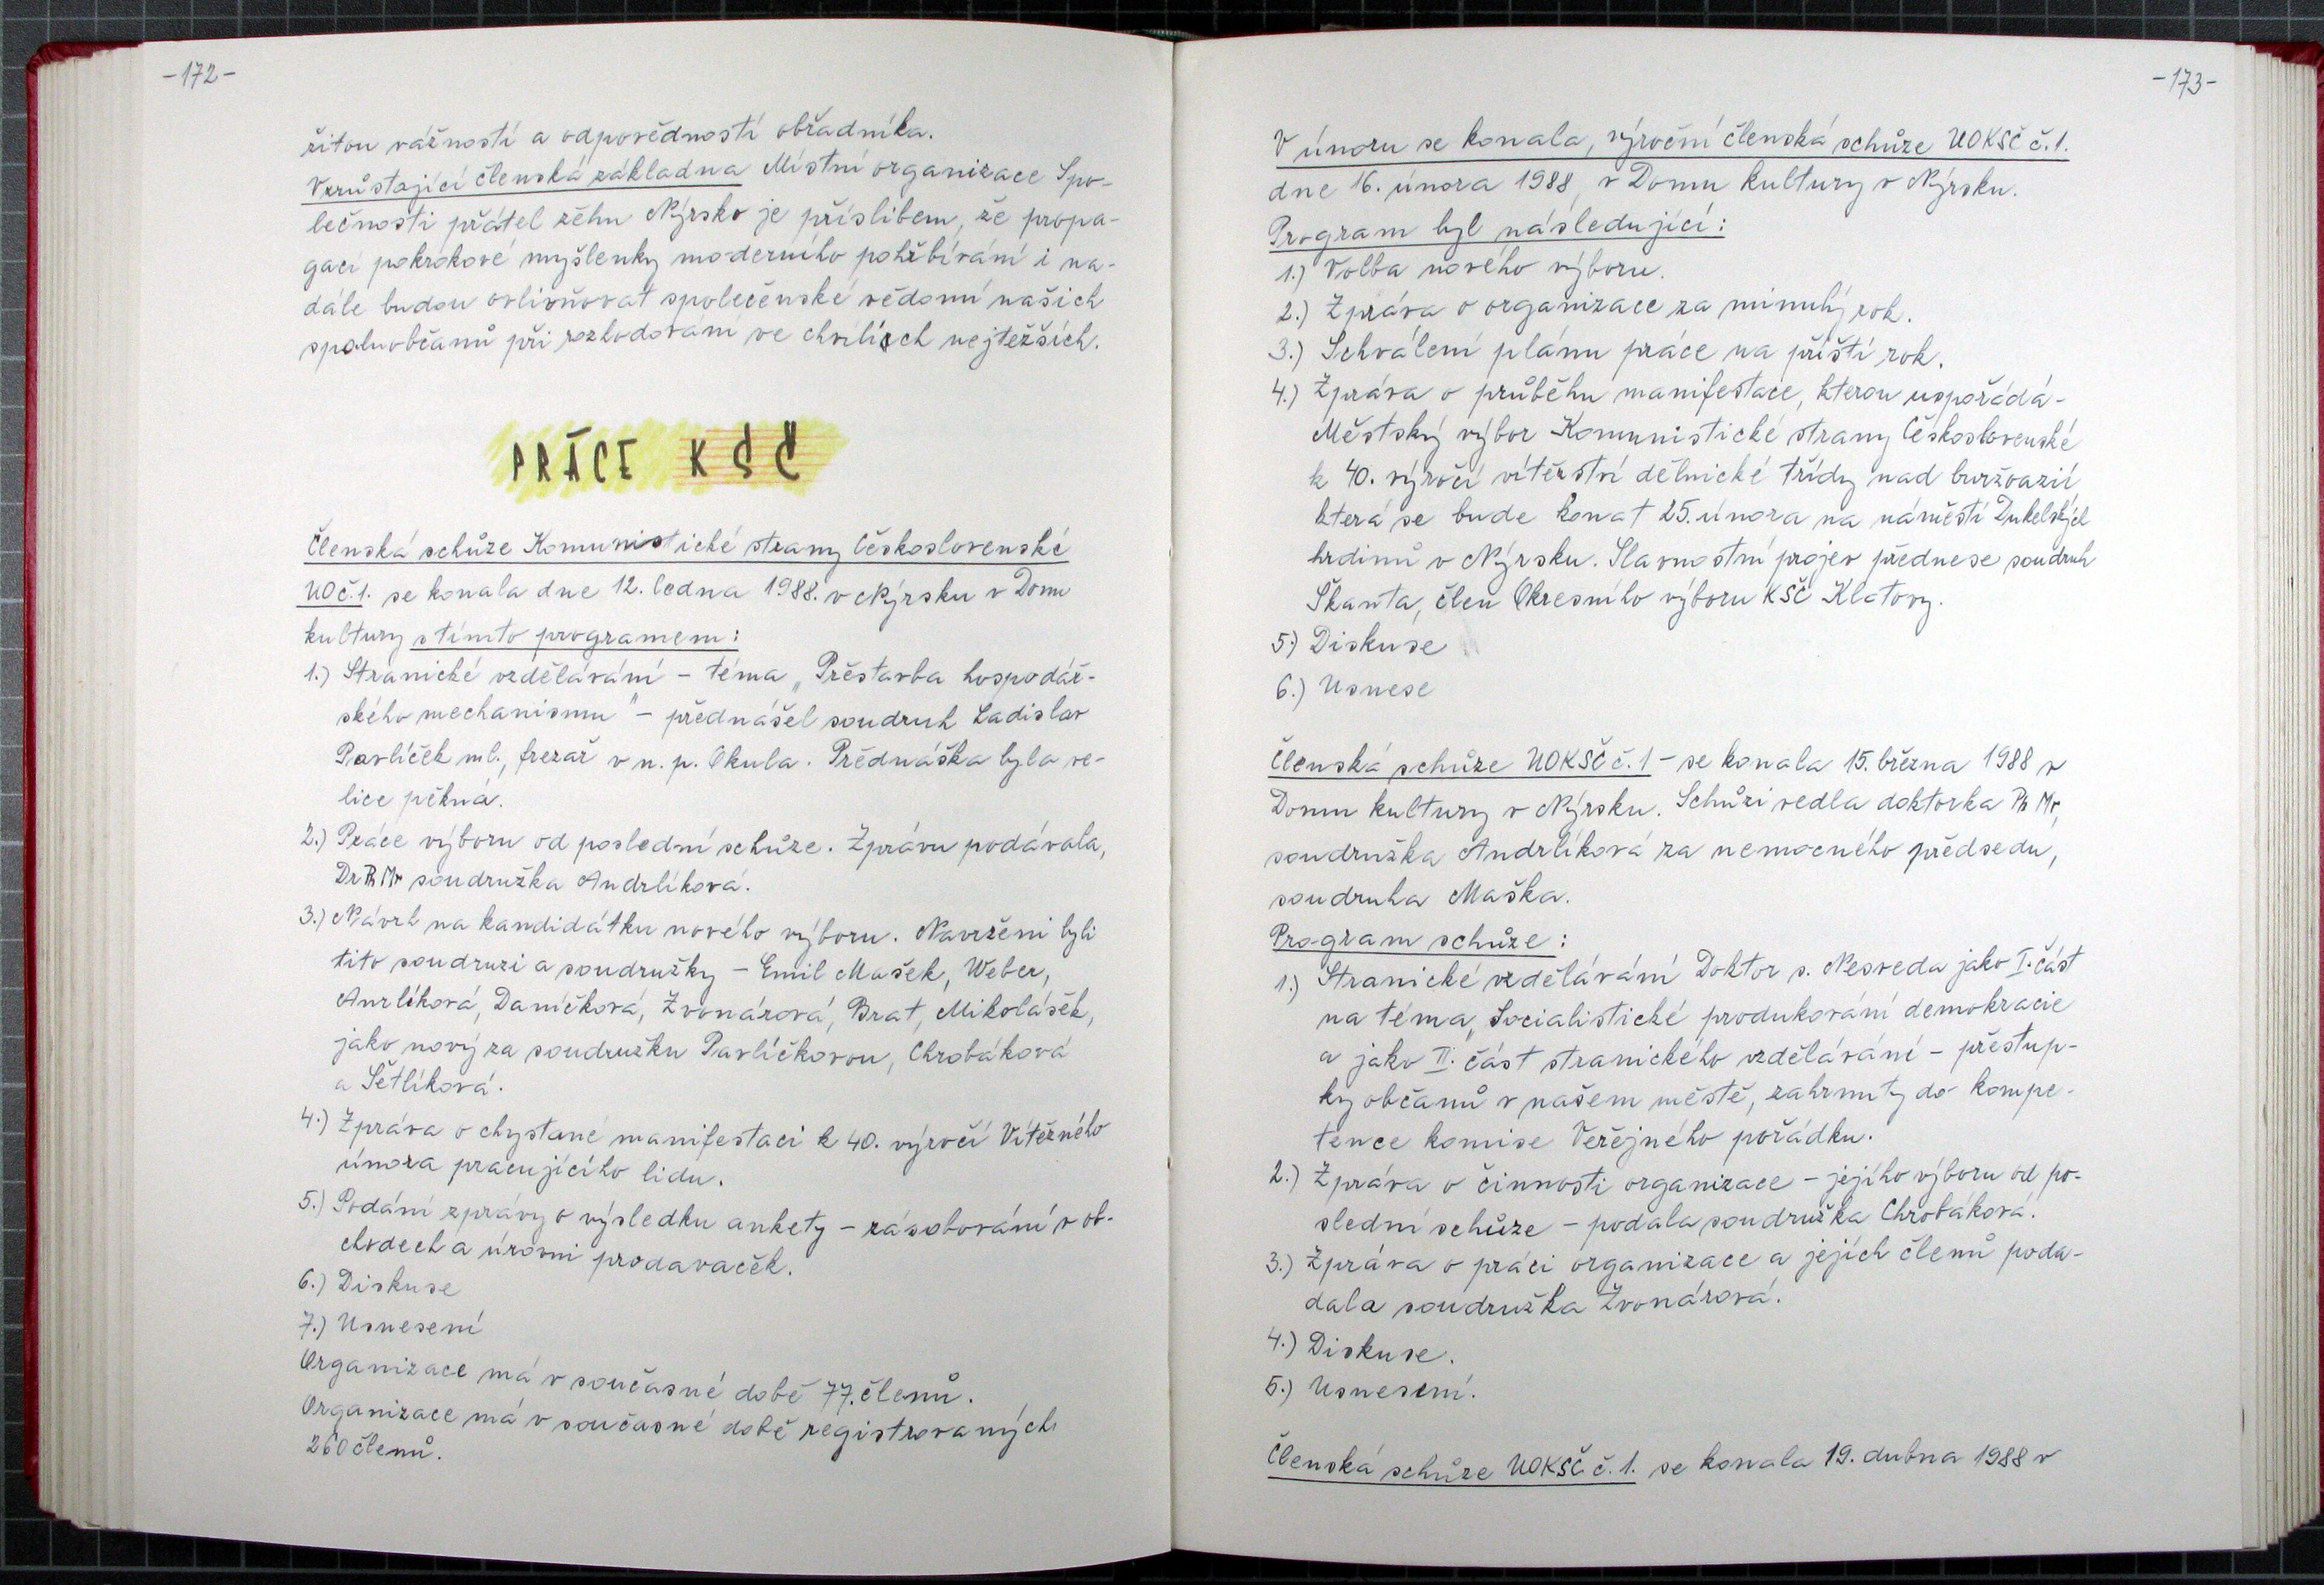 -172-
žitou vážností a odpovědností obřadníka.
Vzrůstající členská základna Místní organizace Spo-
lečnosti přátel žehu Nýrsko je příslibem, že propa-
gací pokrokové myšlenky moderního pohřbívání i na-
dále budou ovlivňovat společenské vědomí našich
spoluobčanů při rozhodování ve chvílích nejtežších.
PRÁCE KSČ
Členská schůze Komunistické strany Československé
UO č.1. se konala dne 12. ledna 1988. v Nýrsku v Domu
kultury s tímto programem:
1.) Stranické vzdělávání - téma „Přestavba hospodář-
ského mechanismu" - přednášel soudruh Ladislav
Pavlíček ml., frezař v n. p. Okula. Přednáška byla ve-
lice pěkná.
2.) Práce výboru od poslední schůze. Zprávu podávala,
Dr Ph Mr soudružka Andrlíková.
3.) Návrh na kandidátku nového výboru. Navrženi byli
tito soudruzi a soudružky - Emil Mašek, Weber,
Anrlíková, Daníčková, Zvonárová, Brat, Mikolášek,
jako nový za soudružku Pavlíčkovou, Chrobáková
a Šetlíková.
4.) Zpráva o chystané manifestaci k 40. výročí Vítězného
února pracujícího lidu.
5.) Podání zprávy o výsledku ankety - zásobování v ob-
chodech a úrovni prodavaček.
6.) Diskuse
7.) Usnesení
Organizace má v současné době 77. členů.
Organizace má v současné době registrovaných
260 členů.
-173-
V únoru se konala, výroční členská schůze UOKSČ č.1.
dne 16. února 1988, v Domu kultury v Nýrsku.
Program byl následující:
1.) Volba nového výboru.
2.) Zpráva o organizace za minulý rok.
3.) Schválení plánu práce na příští rok.
4.) Zpráva o průběhu manifestace, kterou uspořádá-
Městský výbor Komunistické strany Československé
k 40. výročí vítězství dělnické třídy nad buržoazií
která se bude konat 25. února na náměstí Dukelských
hrdinů v Nýrsku. Slavnostní projev přednese soudruh
Škanta, člen Okresního výboru KSČ Klatovy.
5.) Diskuse
6.) Usnese
Členská schůze UOKSČ č.1 - se konala 15. března 1988 v
Domu kultury v Nýrsku. Schůzi vedla doktorka Ph Mr,
soudružka Andrlíková za nemocného předsedu,
soudruha Maška.
Program schůze:
1.) Stranické vzdělávání Doktor s. Nesveda jako I. část
na téma, Socialistické produkování demokracie
a jako II. část stranického vzdělávání - přestup-
ky občanů v našem městě, zahrnuty do kompe-
tence komise Veřejného pořádku.
2.) Zpráva o činnosti organizace - jejího výboru od po-
slední schůze - podala soudružka Chrobáková.
3.) Zpráva o práci organizace a jejích členů poda-
dala soudružka Zvonárová.
4.) Diskuse.
5.) Usnesení.
Členská schůze UOKSČ č.1. se konala 19. dubna 1988 v